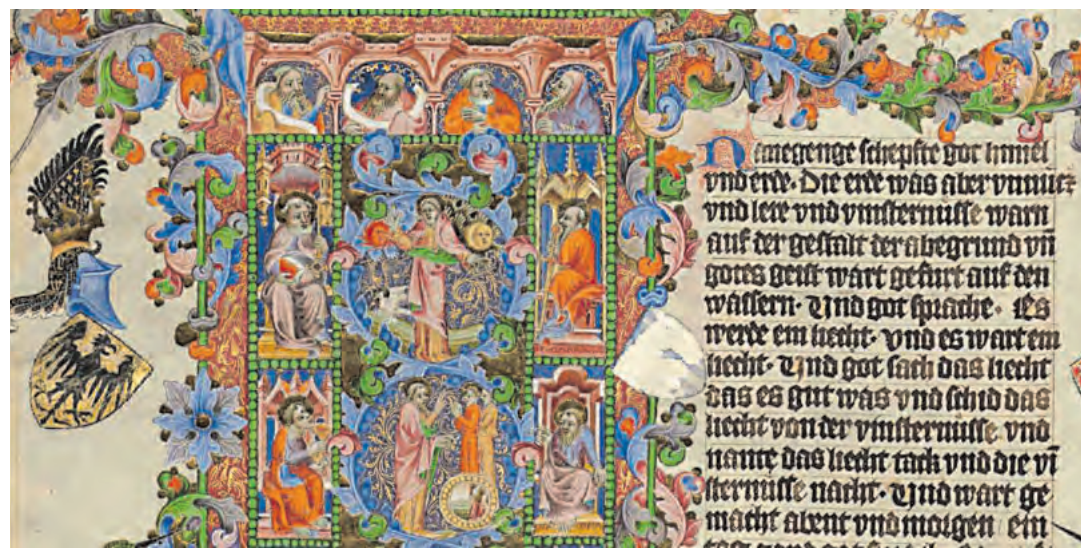 Nanegenge schepfte got himel
vnd erde. Die erde was aber vnnutz
vnd lere vnd vinsternusse warn
auf der gestalt der abegrund vn̄
gotes geist wart gefurt auf den
wassern. Vnd got sprache. Es
werde ein liecht. vnd es wart ein
liecht. Vnd got sach das liecht
das es gut was vnd schid das
liecht von der vinsternusse vnd
nante das liecht tack vnd die vī
sternusse nacht. Vnd wart ge
macht abent vnd morgen ein